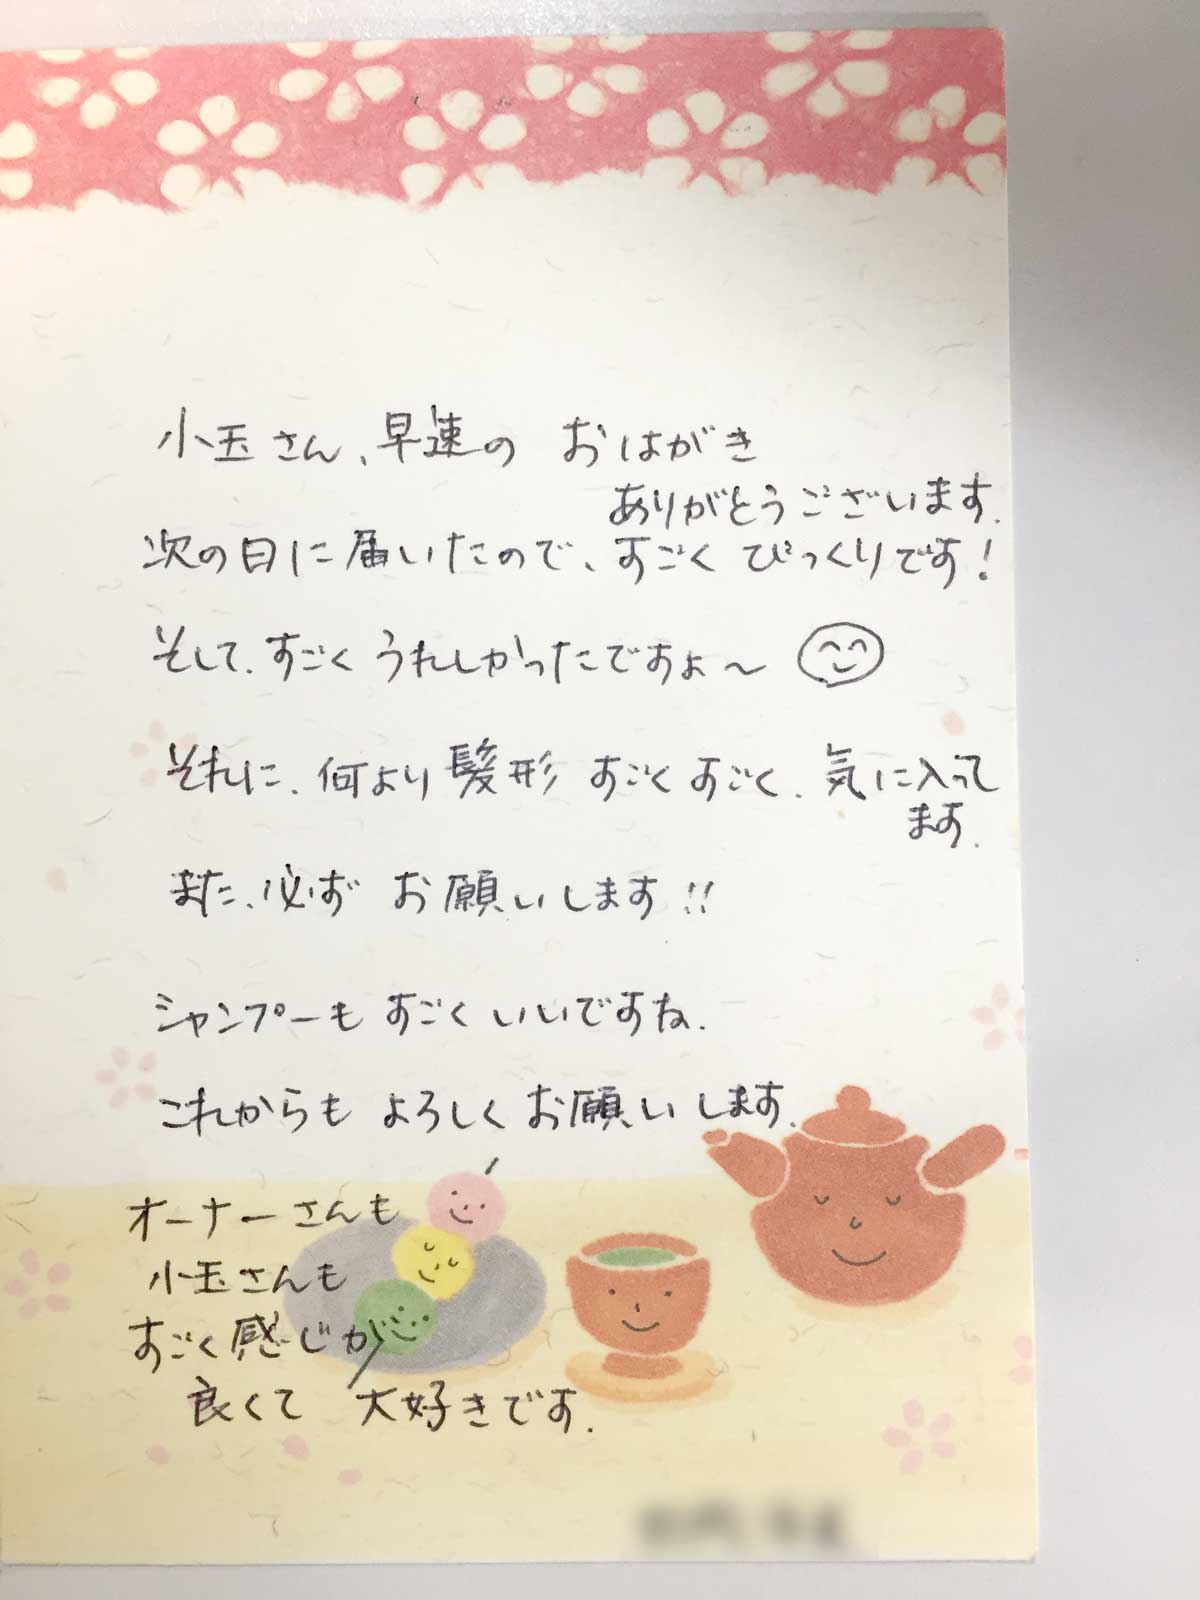 小玉さん、早速の おはがき
ありがとうございます.
次の日に届いたので、すごく びっくりです!
そして、すごく うれしかったですょ〜
それに、何より髪形 すごくすごく、気に入って
ます.
また、必ず お願いします!!
シャンプーも すごくいいですね.
これからも よろしくお願いします.
オーナーさんも
小玉さんも
すごく感じが
良くて 大好きです.